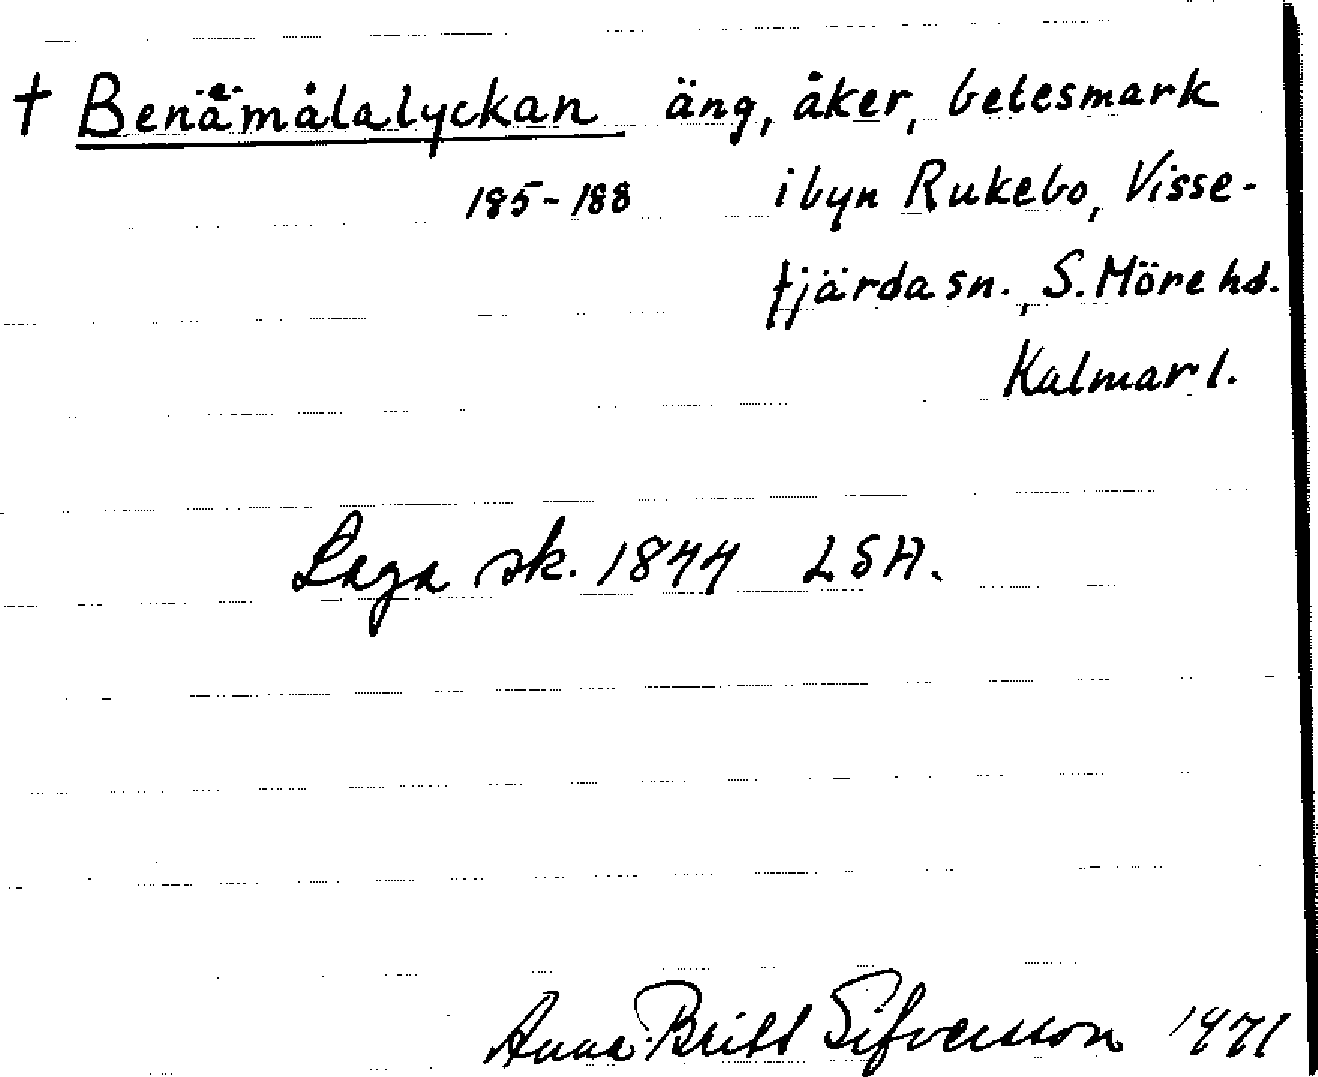 † Benämålalyckan äng, åker, betesmark
185-188 i byn Rukebo, Visse-
fjärda sn., S. Möre hd.
Kalmar l.
Laga sk. 1844 LSA.
Anna-Britt Sifversson 1971